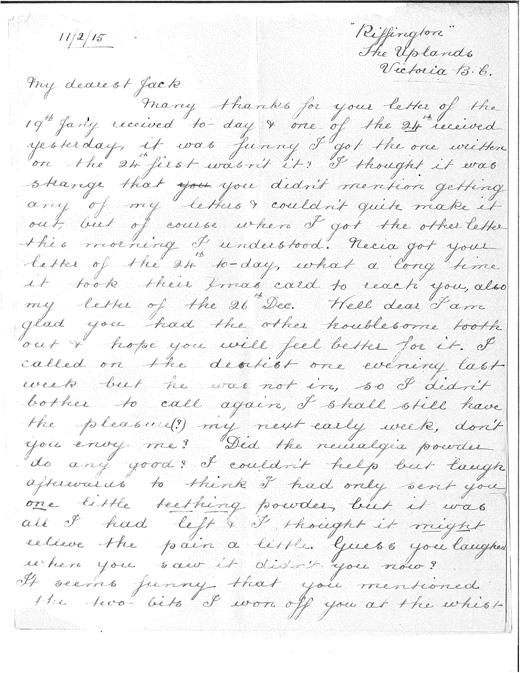 11/2/15
"Riffington"
The Uplands
Victoria B.C.
My dearest Jack
Many thanks for your letter of the
19th Jan'y received to-day & one of the 24th received
yesterday, it was funny I got the one written
on the 24th first wasn't it? I thought it was
strange that you you didn't mention getting
any of my letters & couldn't quite make it
out, but of course when I got the other letter
this morning I understood. Necia got your
letter of the 24th to-day, what a long time
it took their Xmas card to reach you, also
my letter of the 26th Dec. Well dear I am
glad you had the other troublesome tooth
out & hope you will feel better for it. I
called on the dentist one evening last
week but he was not in, so I didn't
bother to call again, I shall still have
the pleasure(?) my next early week, don't
you envy me? Did the neuralgia powder
do any good? I couldn't help but laugh
afterwards to think I had only sent you
one little teething powder, but it was
all I had left & I thought it might
relieve the pain a little. Guess you laughed
when you saw it didn't you now?
It seems funny that you mentioned
the two-bits I won off you at the whist